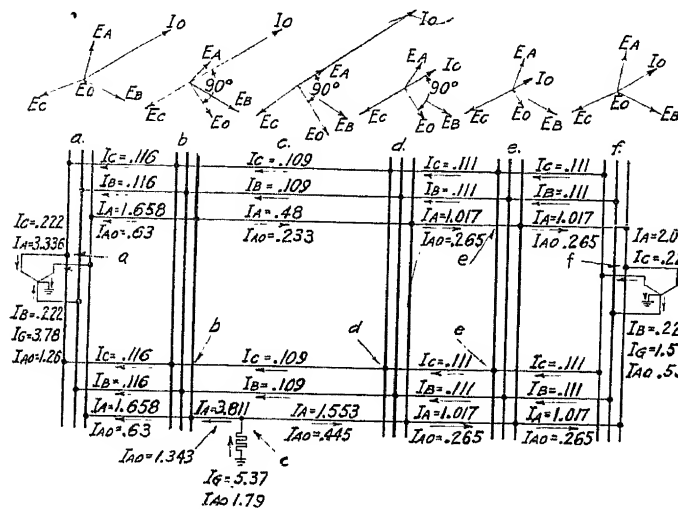 EA IO EC EO EB
EA IO 90° EC EO EB
IO EA 90° EC EO EB
EA IO 90° EC EO EB
EA IO EC EO EB
EA IO EC EO EB
a. b c. d. e. f.
IC=.116 IC=.109 IC=.111 IC=.111
IB=.116 IB=.109 IB=.111 IB=.111
IA=1.658 IA=.48 IA=1.017 IA=1.017
IAO=.63 IAO=.233 IAO=.265 IAO .265
IC=.222
IA=3.336
a
e
f
IA=2.0
IC=.22
IB=.222
IG=3.78
IAO=1.26
IB=.22
IG=1.5
IAO .53
b d e
IC=.116 IC=.109 IC=.111 IC=.111
IB=.116 IB=.109 IB=.111 IB=.111
IA=1.658 IA=3.811 IA=1.553 IA=1.017 IA=1.017
IAO=.63 IAO=.445 IAO=.265 IAO=.265
IAO=1.343
c
IG=5.37
IAO 1.79